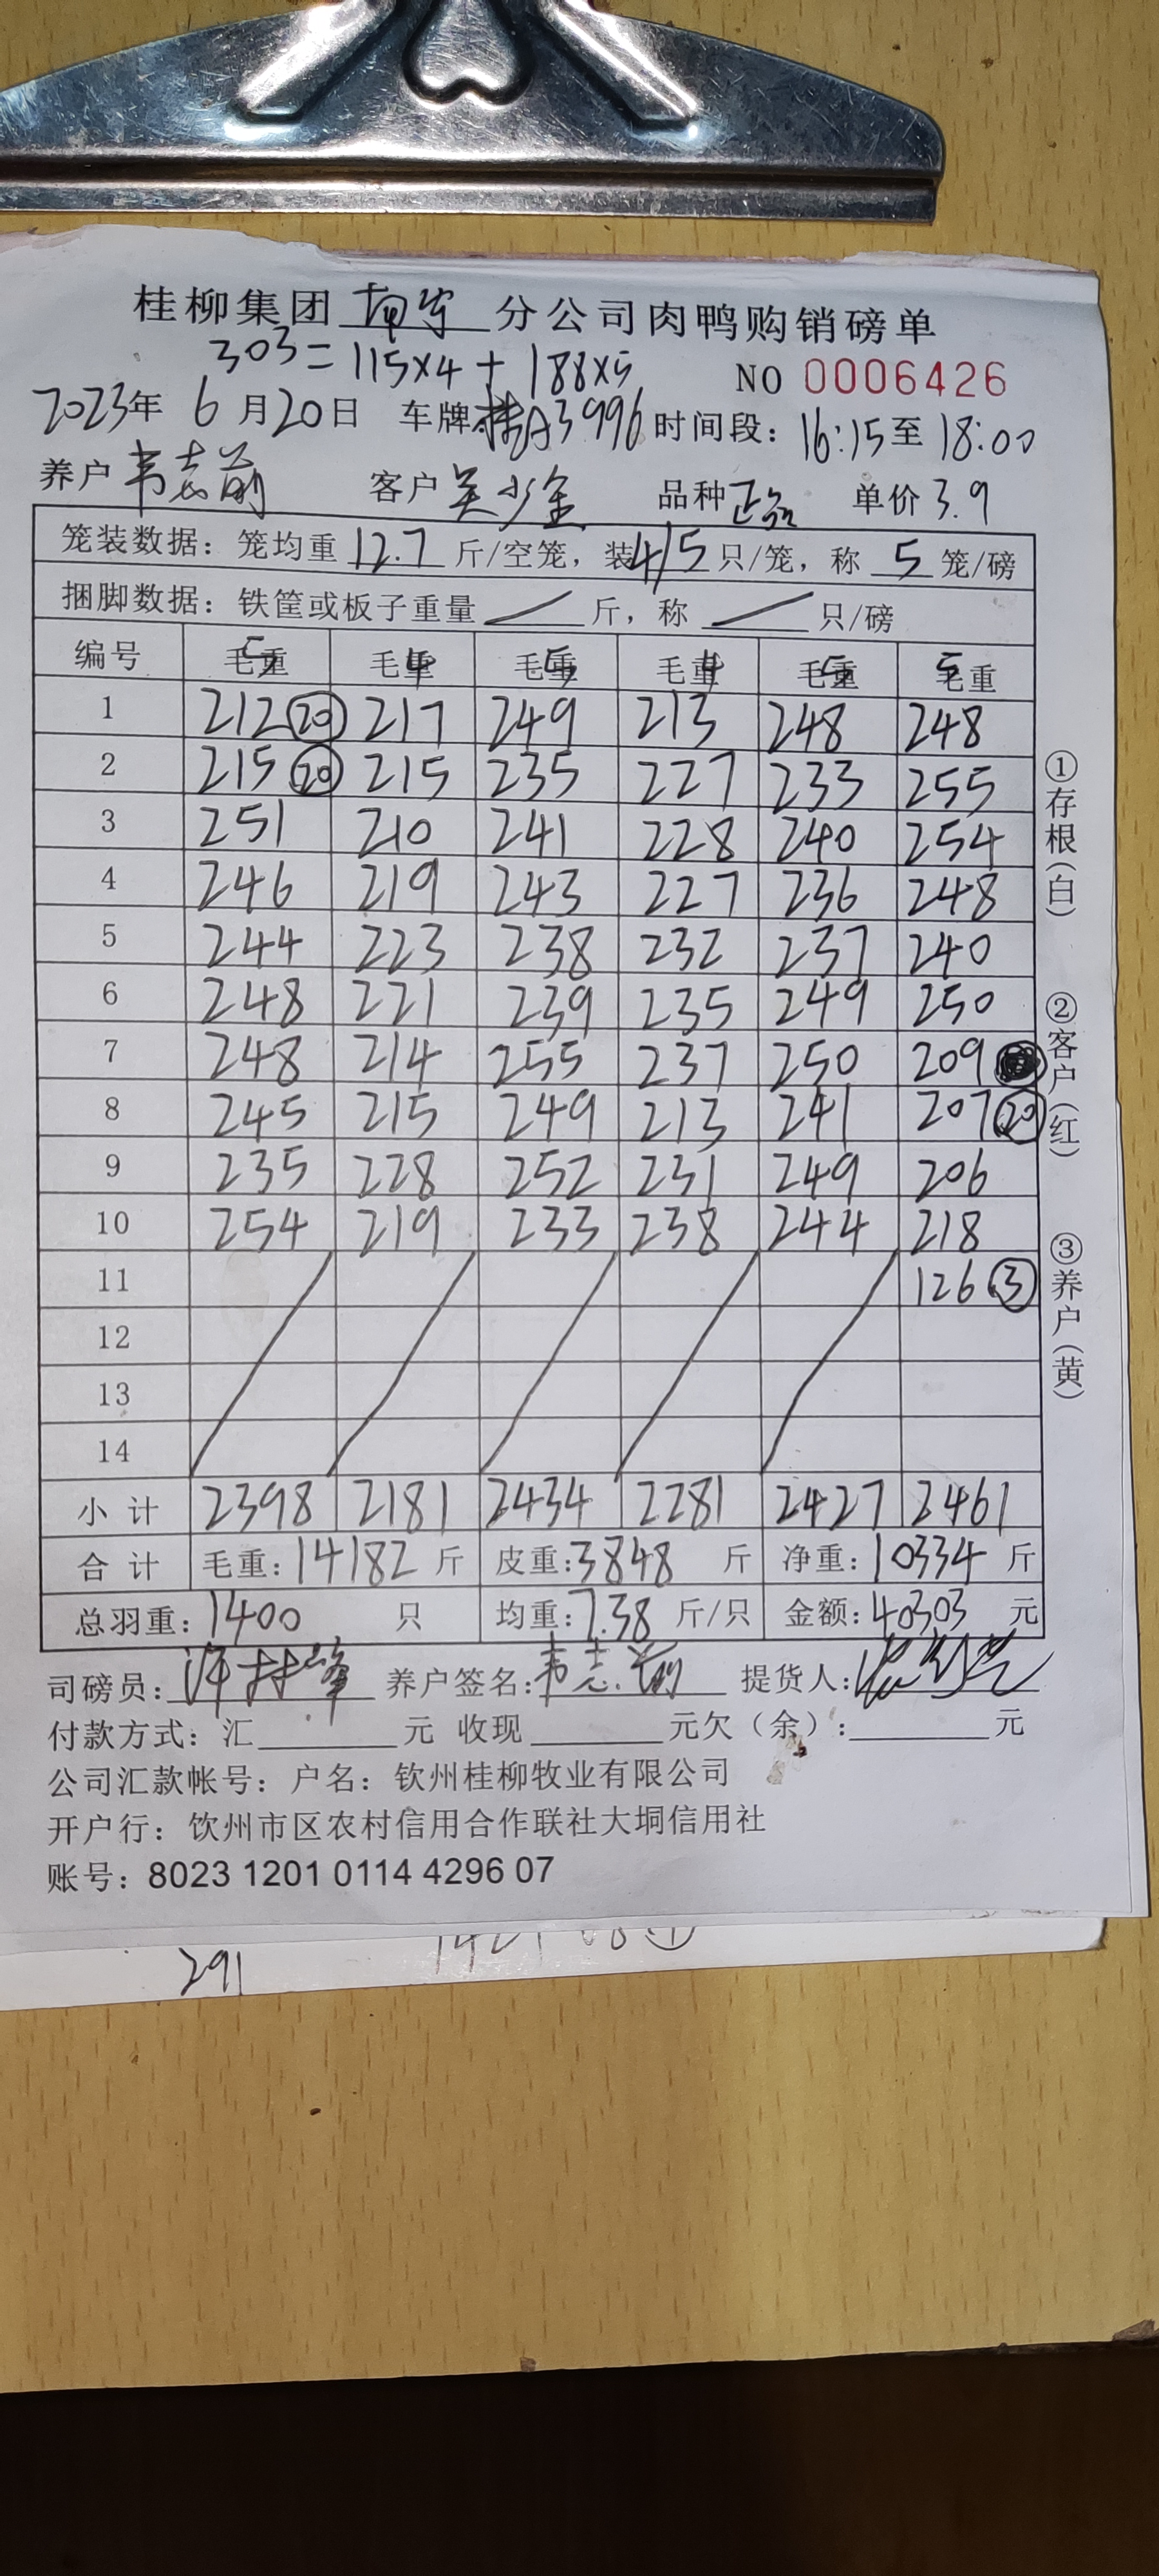 桂柳集团南宁分公司肉鸭购销磅单
303=115×4+188×5
NO 0006426
2023年 6月20日 车牌桂A3996 时间段：16:15至18:00
养户 韦志前 客户 吴少金 品种 正品 单价 3.9
笼装数据：笼均重 12.7 斤/空笼，装4/5只/笼，称 5 笼/磅
捆脚数据：铁筐或板子重量 / 斤，称 / 只/磅
编号 毛重5 毛重4 毛重5 毛重4 毛重5 毛重5
1 212⑳ 217 249 213 248 248
2 215⑳ 215 235 227 233 255
3 251 210 241 228 240 254
4 246 219 243 227 236 248
5 244 223 238 232 237 240
6 248 221 239 235 249 250
7 248 214 255 237 250 209
8 245 215 249 213 241 207⑳
9 235 228 252 231 249 206
10 254 219 233 238 244 218
11 126③
12
13
14
小计 2398 2181 2434 2281 2427 2461
合计 毛重：14182 斤 皮重：3848 斤 净重：10334 斤
总羽重：1400 只 均重：7.38 斤/只 金额：40303 元
司磅员： 养户签名：韦志前 提货人：
付款方式：汇 元 收现 元欠（余）： 元
公司汇款帐号：户名：钦州桂柳牧业有限公司
开户行：饮州市区农村信用合作联社大垌信用社
账号：8023 1201 0114 4296 07
①存根（白）
②客户（红）
③养户（黄）
291